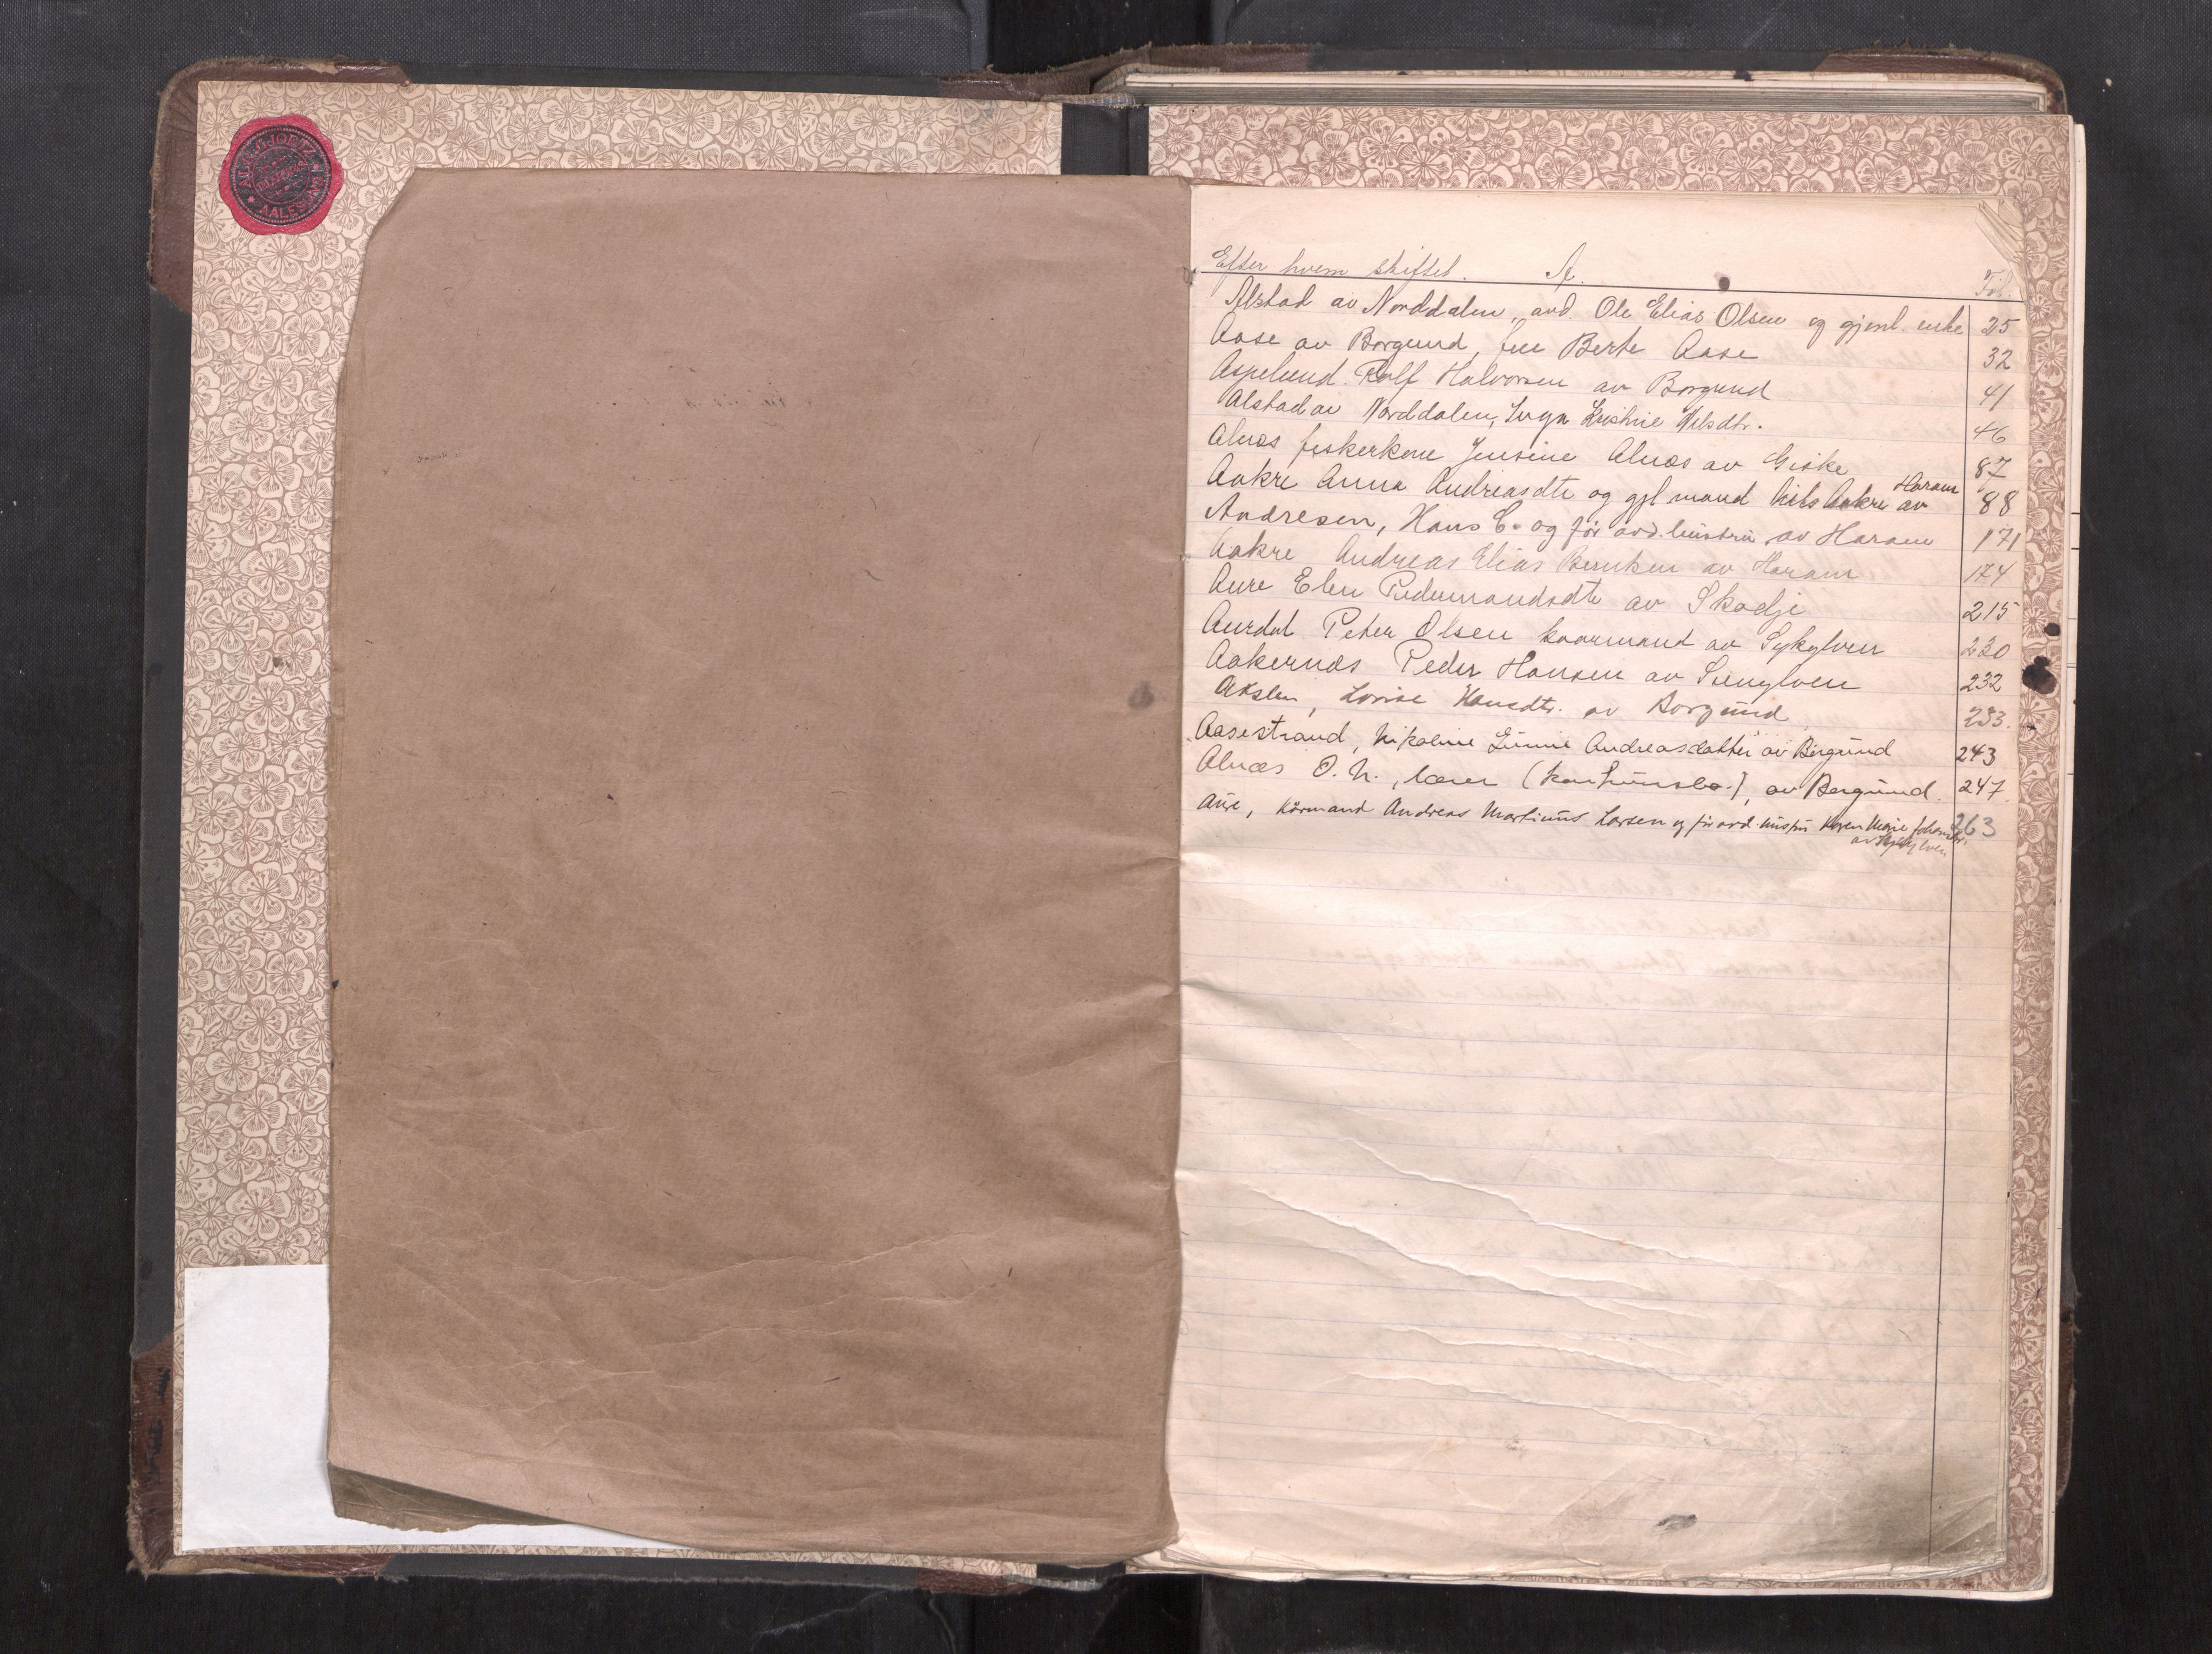 AALESUND
Efter hvem skiftet. A. Fol.
Alstad av Norddalen, avd. Ole Elias Olsen og gjenl. enke 25
Aase av Borgund, fru Berte Aase 32
Aspelund Ralf Halvorsen av Borgund 41
Alstad av Norddalen, Inga Kristine Nilsdtr. 46
Alnæs fiskerkone Jensine Alnæs av Giske 87
Aakre Anna Andreasdtr og gjl mand Nils Aakre av Haram 88
Andresen, Hans C. og før avd. hustru av Haram 171
Aakre Andreas Elias Berntsen av Haram 174
Aure Elen Pedermandsdtr av Skodje 215
Aurdal Peter Olsen kaarmand av Sykylven 230
Aakernæs Peder Hansen av Sunylven 232
Akslen, Lovise Hansdtr. av Borgund 233.
Aasestrand, Nikoline Linnie Andreasdatter av Borgund 243
Alnæs O. N., lærer (konkursbo.), av Borgund. 247.
Aure, kårmand Andreas Martinus Larsen og før avd. hustru Karen Marie Johansdtr. 263
av Sykkylven